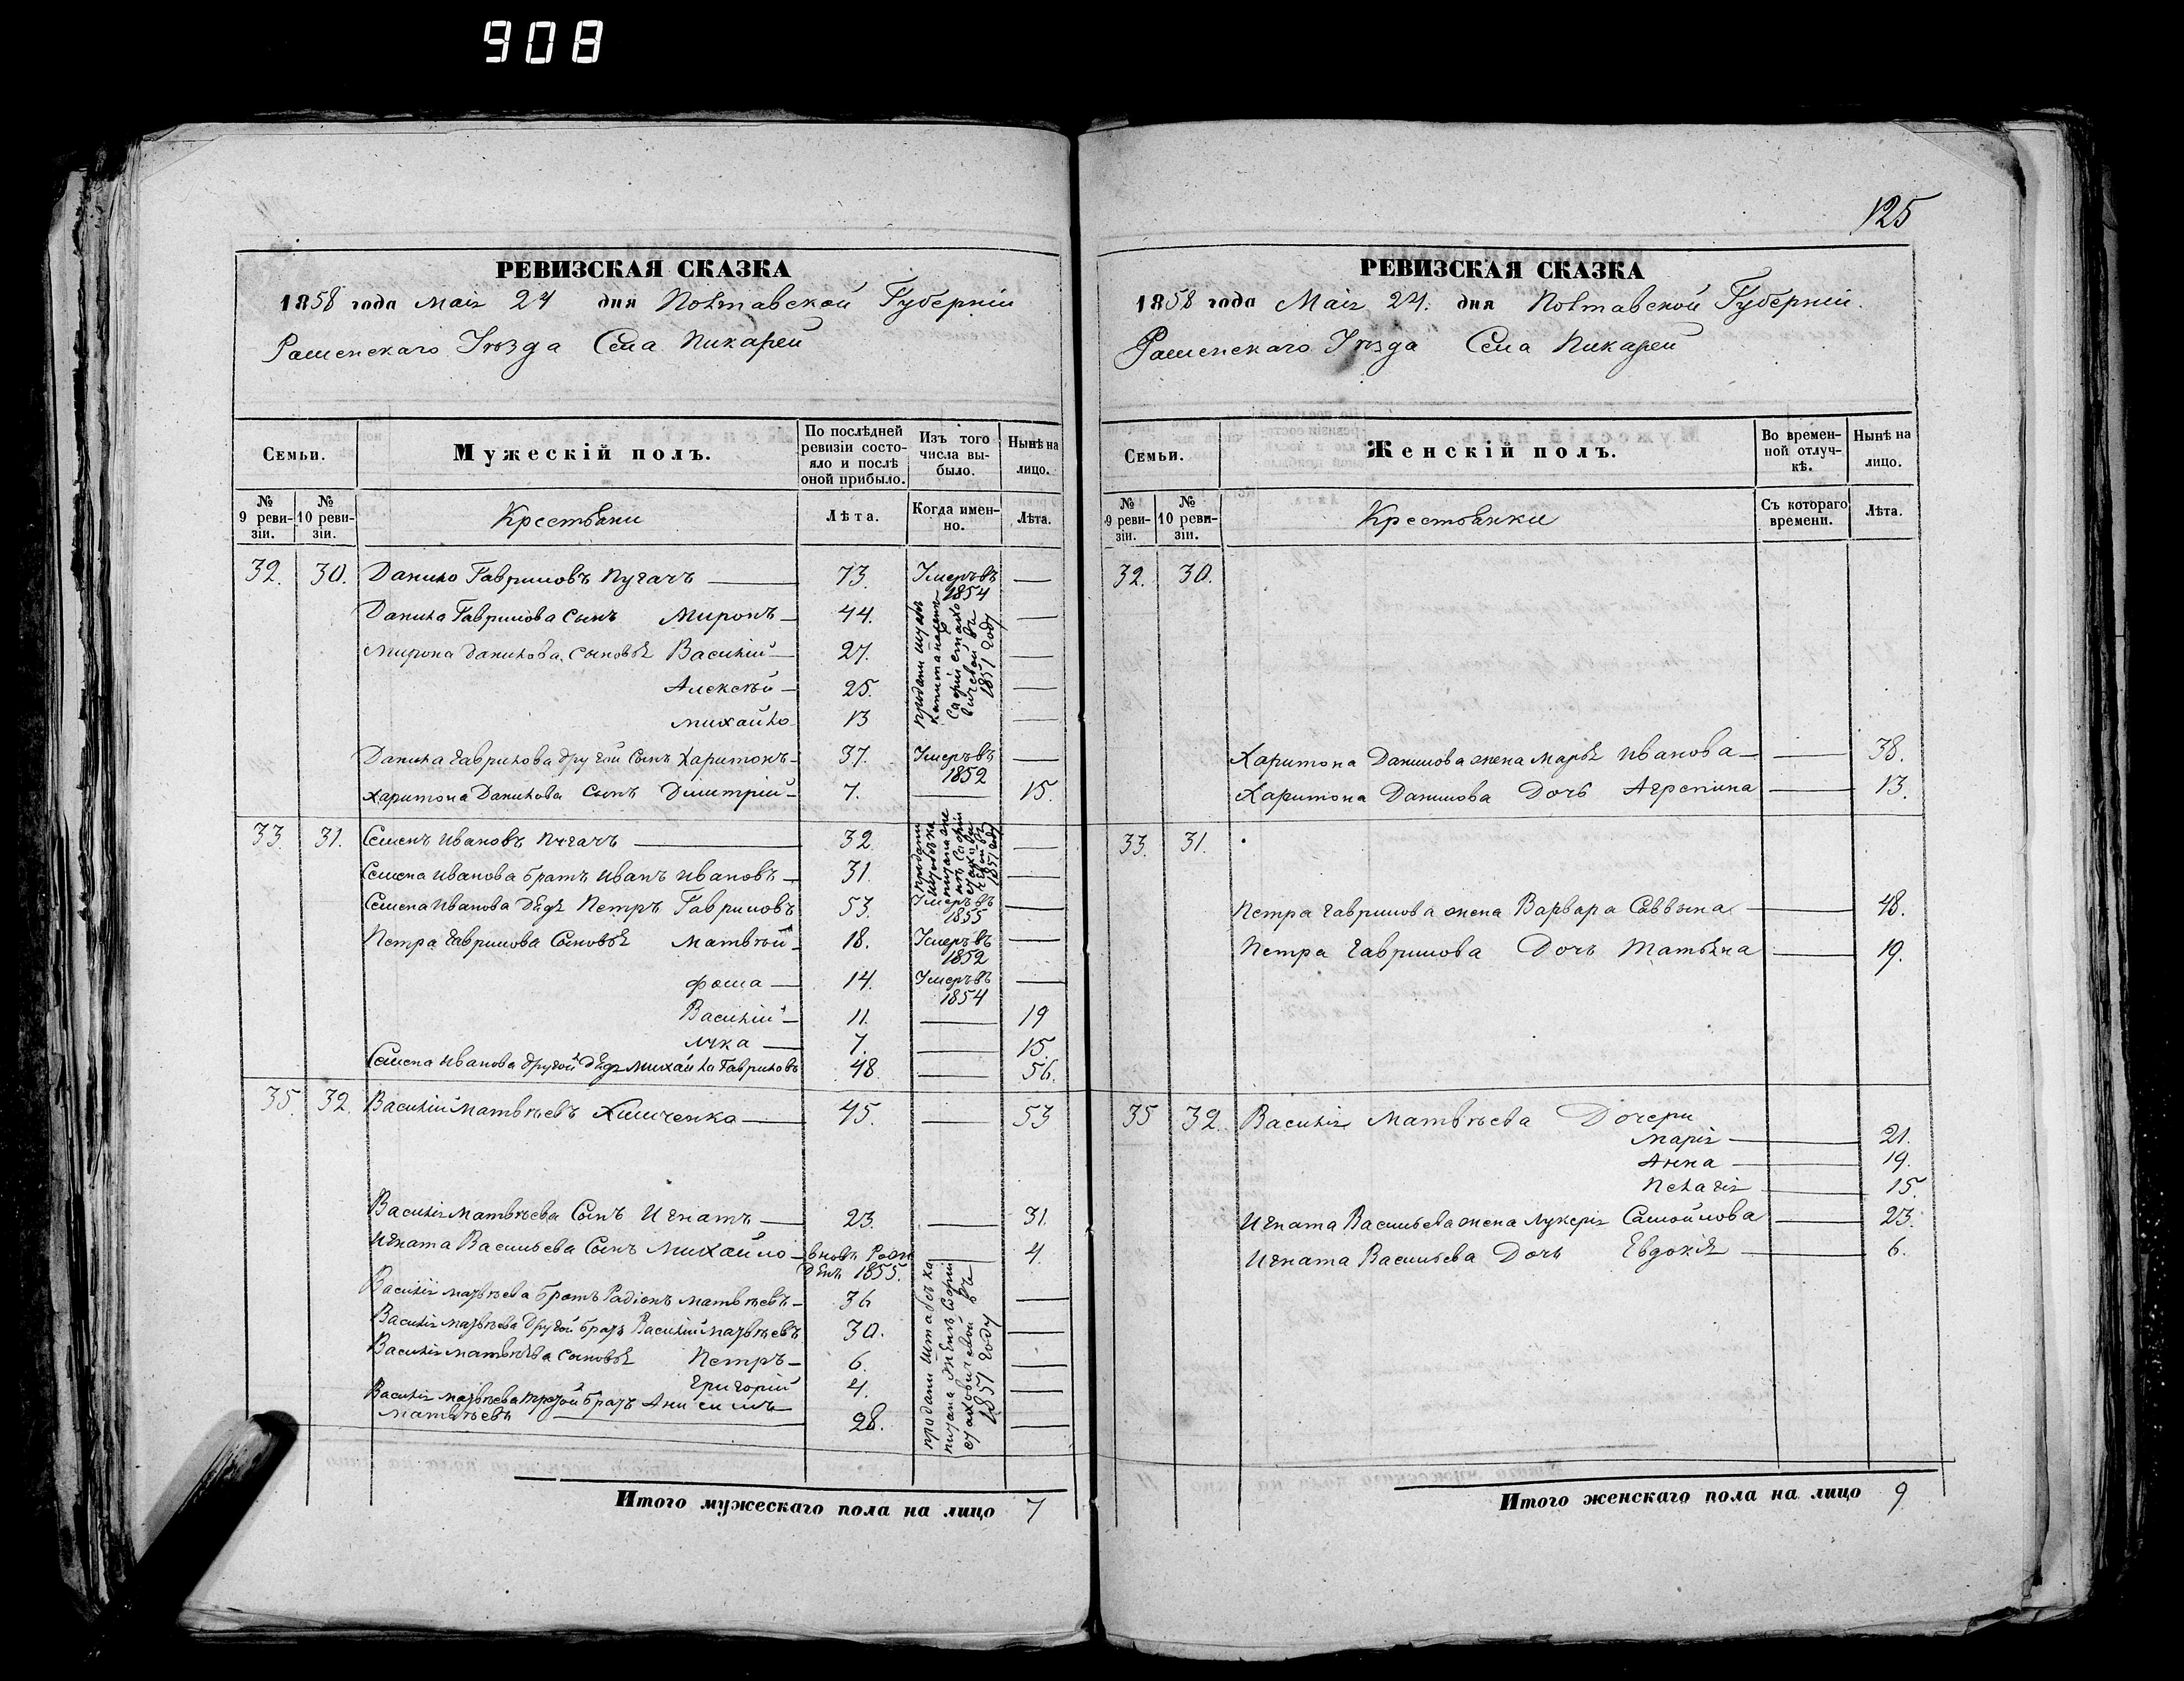 908
РЕВИЗСКАЯ СКАЗКА
1858 года Маія 24 дня Полтавской Губерніи
Уѣзда Села Пикарей
Семьи.
Мужескій полъ.
По послѣдней ревизіи состояло и послѣ оной прибыло.
Изъ того числа выбыло.
Нынѣ на лицо.
№ 9 ревизіи.
№ 10 ревизіи.
Крестьяни
Лѣта.
Когда именно.
Лѣта.
32. 30. Данило Гавриловъ Пугачъ 73. Умеръ въ 1854
Данила Гаврилова Сынъ Миронъ 44.
Мирона Данилова Сыновья Василій 27.
Алексѣй 25.
Михайло 13
проданы Штабъ Капитанше Софіи въ 1851 году
Данила Гаврилова другой Сынъ Харитонъ 37. Умеръ въ 1852
Харитона Данилова Сынъ Дмитрій 7. 15.
33. 31. Семенъ Ивановъ Пугачъ 32.
Семена Иванова братъ Иванъ Ивановъ 31.
проданы Софіи 1851 году
Семена Иванова Дядя Петръ Гавриловъ 53. Умеръ въ 1855
Петра Гаврилова Сыновья Матвѣй 18. Умеръ въ 1852
Фома 14. Умеръ въ 1854
Василій 11. 19
Лука 7. 15.
Семена Иванова другой дядя Михайло Гавриловъ 48 56.
35. 32. Василій Матвѣевъ Хименка 45. 53
Василія Матвѣева Сынъ Игнатъ 23. 31.
Игната Васильева Сынъ Михайло вновь Рожденъ 1855. 4.
Василія Матвѣева братъ Радіонъ Матвѣевъ 36
Василія Матвѣева Другой братъ Василій Матвѣевъ 30.
Василія Матвѣева Сыновья Петръ 6.
Григорій 4.
Василія Матвѣева третій братъ Анисимъ
Матвѣевъ 28.
проданы Штабсъ Капитана Женѣ Софіи въ 1851 году
Итого мужескаго пола на лицо 7
125
РЕВИЗСКАЯ СКАЗКА
1858 года Маія 24. дня Полтавской Губерніи.
Уѣзда Села Пикарей
Семьи.
Женскій полъ.
Во временной отлучкѣ.
Нынѣ на лицо.
№ 9 ревизіи.
№ 10 ревизіи.
Крестьянки
Съ котораго времени.
Лѣта.
32. 30.
Харитона Данилова жена Марья Иванова 38.
Харитона Данилова Дочь Агрепина 13.
33. 31.
Петра Гаврилова жена Варвара Саввина 48.
Петра Гаврилова Дочь Татьяна 19.
35 32. Василія Матвѣева Дочери
Марія 21.
Анна 19.
Пелагія 15.
Игната Васильева жена Лукерія Самойлова 23.
Игната Васильева Дочь Евдокія 6.
Итого женскаго пола на лицо 9